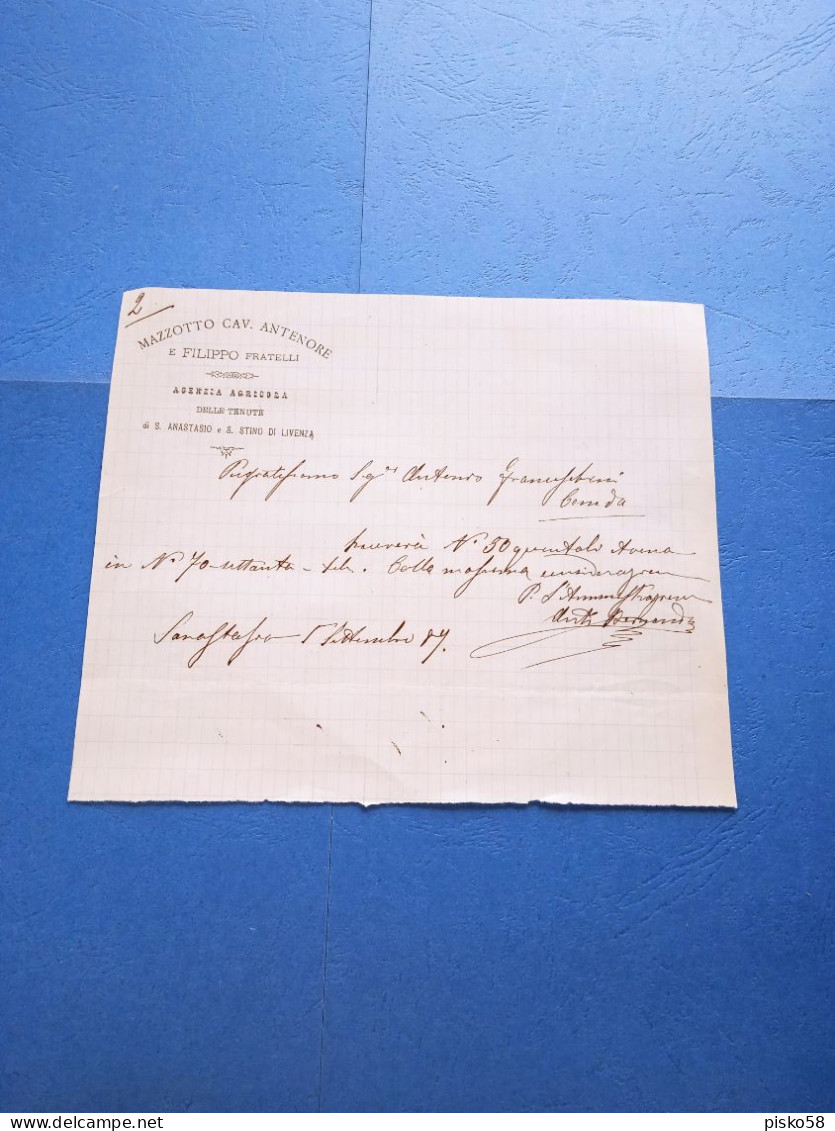 2
MAZZOTTO CAV. ANTENORE
E FILIPPO FRATELLI
AGENZIA AGRICOLA
DELLE TENUTE
di S. ANASTASIO e S. STINO DI LIVENZA
Sigr Antenio Franceschini
Ceneda
Riceverà N° 50 quintali Avena
in N° 70 settanta tele. Colla massima considerazione
P. L'Amministrazione
Sanastasio 1 Settembre 87.
delcampe.net
pisko58